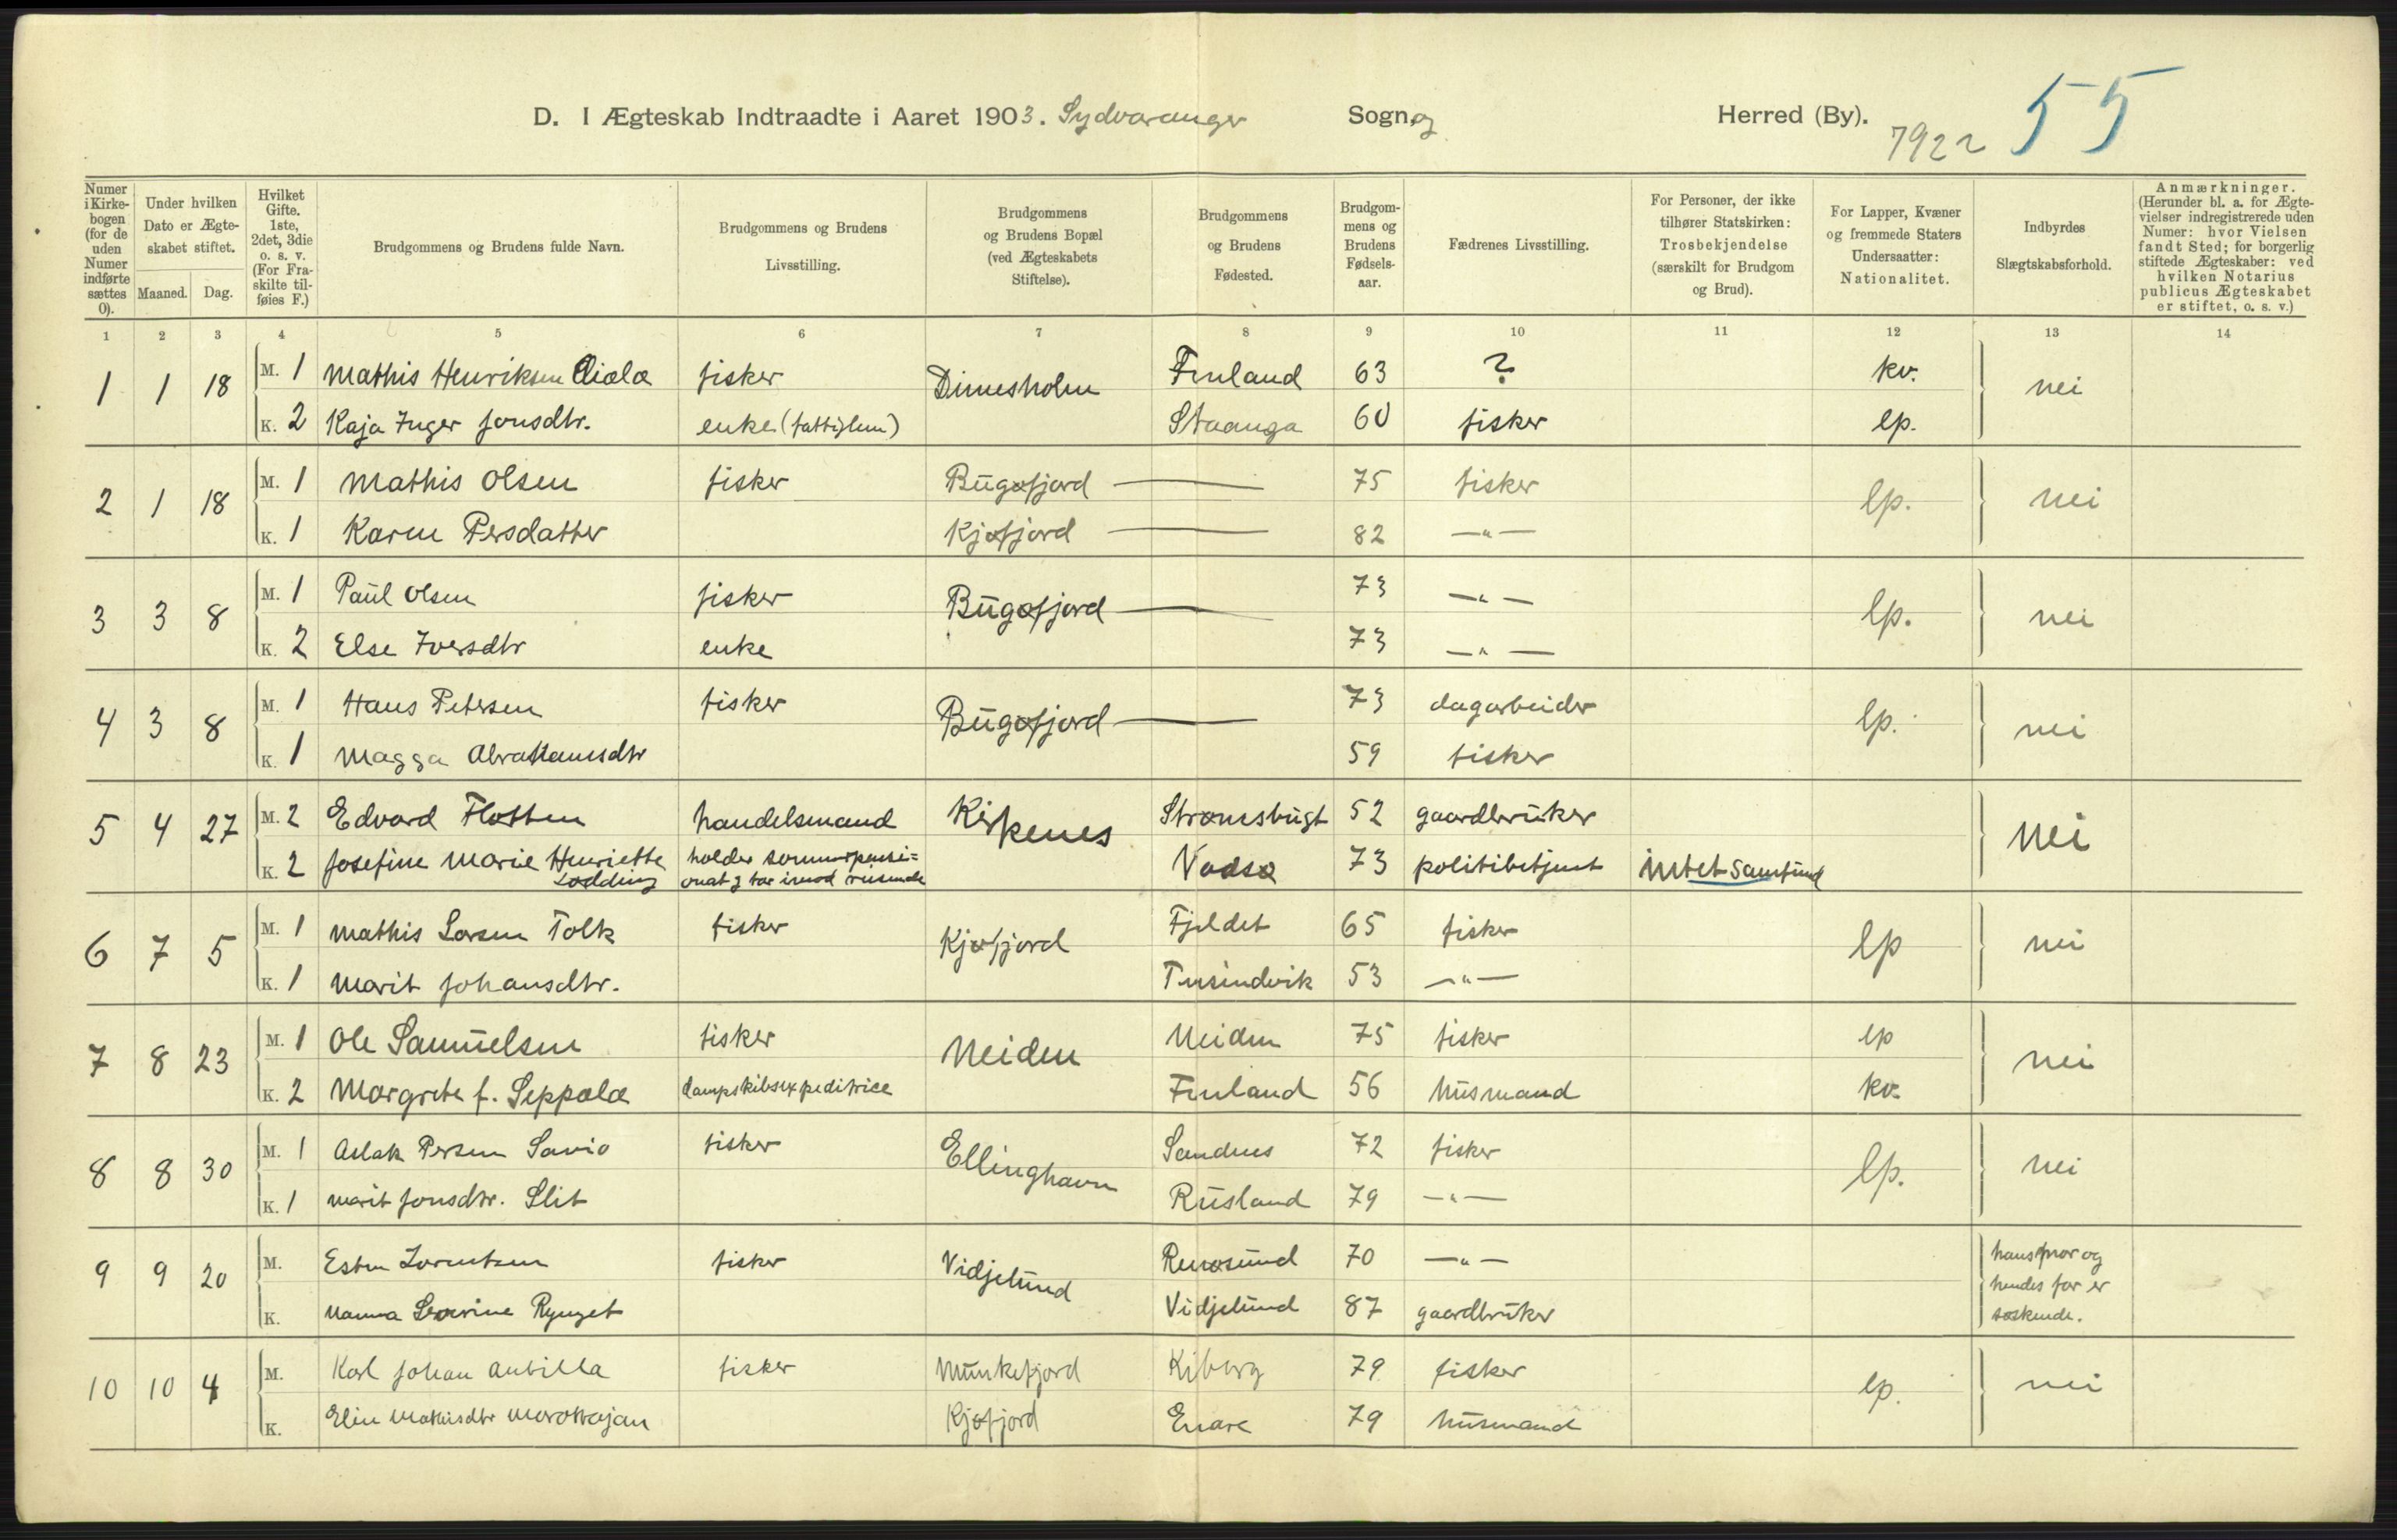 D. I Ægteskab Indtraadte i Aaret 1903. Sydvaranger Sogn og Herred (By).
792 55
Numer i Kirkebogen (for de uden Numer indførte sættes 0).
Under hvilken Dato er Ægteskabet stiftet.
Maaned. Dag.
Hvilket Gifte. 1ste, 2det, 3die o. s. v. (For Fraskilte tilføies F.)
Brudgommens og Brudens fulde Navn.
Brudgommens og Brudens Livsstilling.
Brudgommens og Brudens Bopæl (ved Ægteskabets Stiftelse).
Brudgommens og Brudens Fødested.
Brudgommens og Brudens Fødselsaar.
Fædrenes Livsstilling.
For Personer, der ikke tilhører Statskirken: Trosbekjendelse (særskilt for Brudgom og Brud).
For Lapper, Kvæner og fremmede Staters Undersaatter: Nationalitet.
Indbyrdes Slægtskabsforhold.
Anmærkninger. (Herunder bl. a. for Ægtevielser indregistrerede uden Numer: hvor Vielsen fandt Sted; for borgerlig stiftede Ægteskaber: ved hvilken Notarius publicus Ægteskabet er stiftet, o. s. v.)
1 2 3 4 5 6 7 8 9 10 11 12 13 14
1 1 18 M. 1 Mathis Henriksen fisker Finland 63 ? kv. nei
K. 2 Kaja Inger Jonsdtr. enke (fattiglem) Staanga 60 fisker lp.
2 1 18 M. 1 Mathis Olsen fisker Bugøfjord — 75 fisker lp. nei
K. 1 Karen Persdatter Kjøfjord — 82 —"—
3 3 8 M. 1 Paul Olsen fisker Bugøfjord — 73 —"— lp. nei
K. 2 Else Iversdtr enke 73 —"—
4 3 8 M. 1 Hans Petersen fisker Bugøfjord — 73 dagarbeider lp. nei
K. 1 Magga Abrahamsdtr 59 fisker
5 4 27 M. 2 Edvard Flotten handelsmand Kirkenes Strømsbugt 52 gaardbruker nei
K. 2 Josefine Marie Henriette Lødding holder sommerpensionat & tar imod reisende Vadsø 73 politibetjent intet samfund
6 7 5 M. 1 Mathis Larsen Tolk fisker Kjøfjord Fjeldet 65 fisker lp nei
K. 1 Marit Johansdtr. Tusindvik 53 —"—
7 8 23 M. 1 Ole Samuelsen fisker Neiden Neiden 75 fisker lp nei
K. 2 Margrete f. Seppälä dampskibsexpeditrice Finland 56 husmand kv.
8 8 30 M. 1 Aslak Persen Savio fisker Ellinghavn Sandnes 72 fisker lp. nei
K. 1 Marit Jonsdtr. Slit Rusland 79 —"—
9 9 20 M. Esten Lorentsen fisker Vidjelund Renøsund 70 —"— hans mor og
K. Nanna Severine Rynget Vidjelund 87 gaardbruker hendes far er søskende.
10 10 4 M. Karl Johan fisker Munkefjord Kiberg 79 fisker lp. nei
K. Elin Mathisdtr Kjøfjord Enare 79 husmand